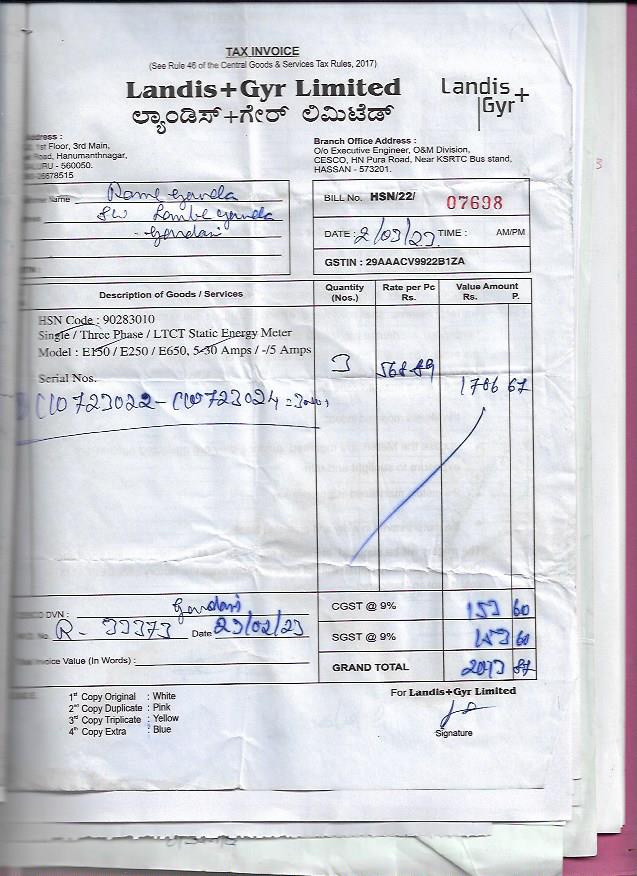 TAX INVOICE
(See Rule 46 of the Central Goods & Services Tax Rules, 2017)
Landis+Gyr Limited
ಲ್ಯಾಂಡಿಸ್+ಗೇರ್ ಲಿಮಿಟೆಡ್
Landis+
Gyr
ddress :
1st Floor, 3rd Main,
Road, Hanumanthnagar,
- 560050.
26678515
Branch Office Address :
O/o Executive Engineer, O&M Division,
CESCO, HN Pura Road, Near KSRTC Bus stand,
HASSAN - 573201.
Name Rame Gowda
S/o Gowda
BILL No. HSN/22/ 07698
DATE : 2/03/23 TIME : AM/PM
GSTIN : 29AAACV9922B1ZA
Description of Goods / Services
Quantity (Nos.)
Rate per Pc Rs.
Value Amount Rs. P.
HSN Code : 90283010
Single / Three Phase / LTCT Static Energy Meter
Model : E150 / E250 / E650, 5-30 Amps / -/5 Amps
3 568 89
1706 67
Serial Nos.
0723022 - 0723024
DVN :
No. R- 33373 Date 23/02/23
Invoice Value (In Words) :
CGST @ 9% 153 60
SGST @ 9% 153 60
GRAND TOTAL 2013 87
1st Copy Original : White
2nd Copy Duplicate : Pink
3rd Copy Triplicate : Yellow
4th Copy Extra : Blue
For Landis+Gyr Limited
Signature